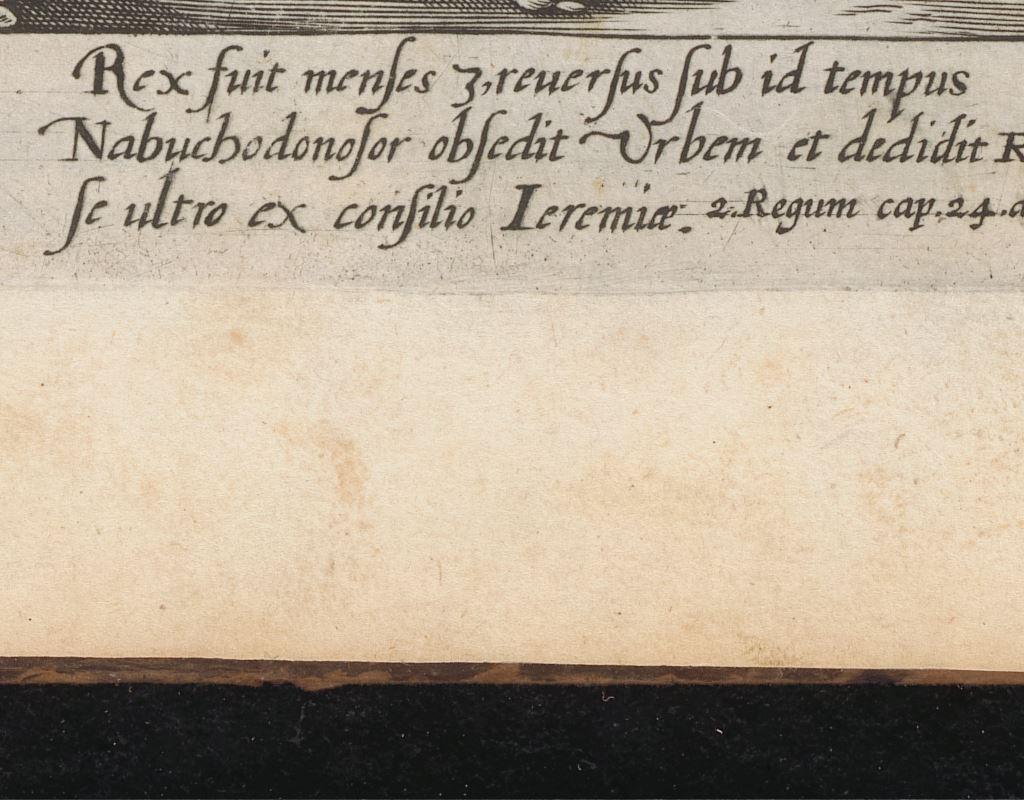 Rex fuit menſes 3, reuerſus ſub id tempus
Nabuchodonoſor obſedit Vrbem et dedidit R
ſe ultro ex conſilio Ieremiæ. 2. Regum cap. 24.